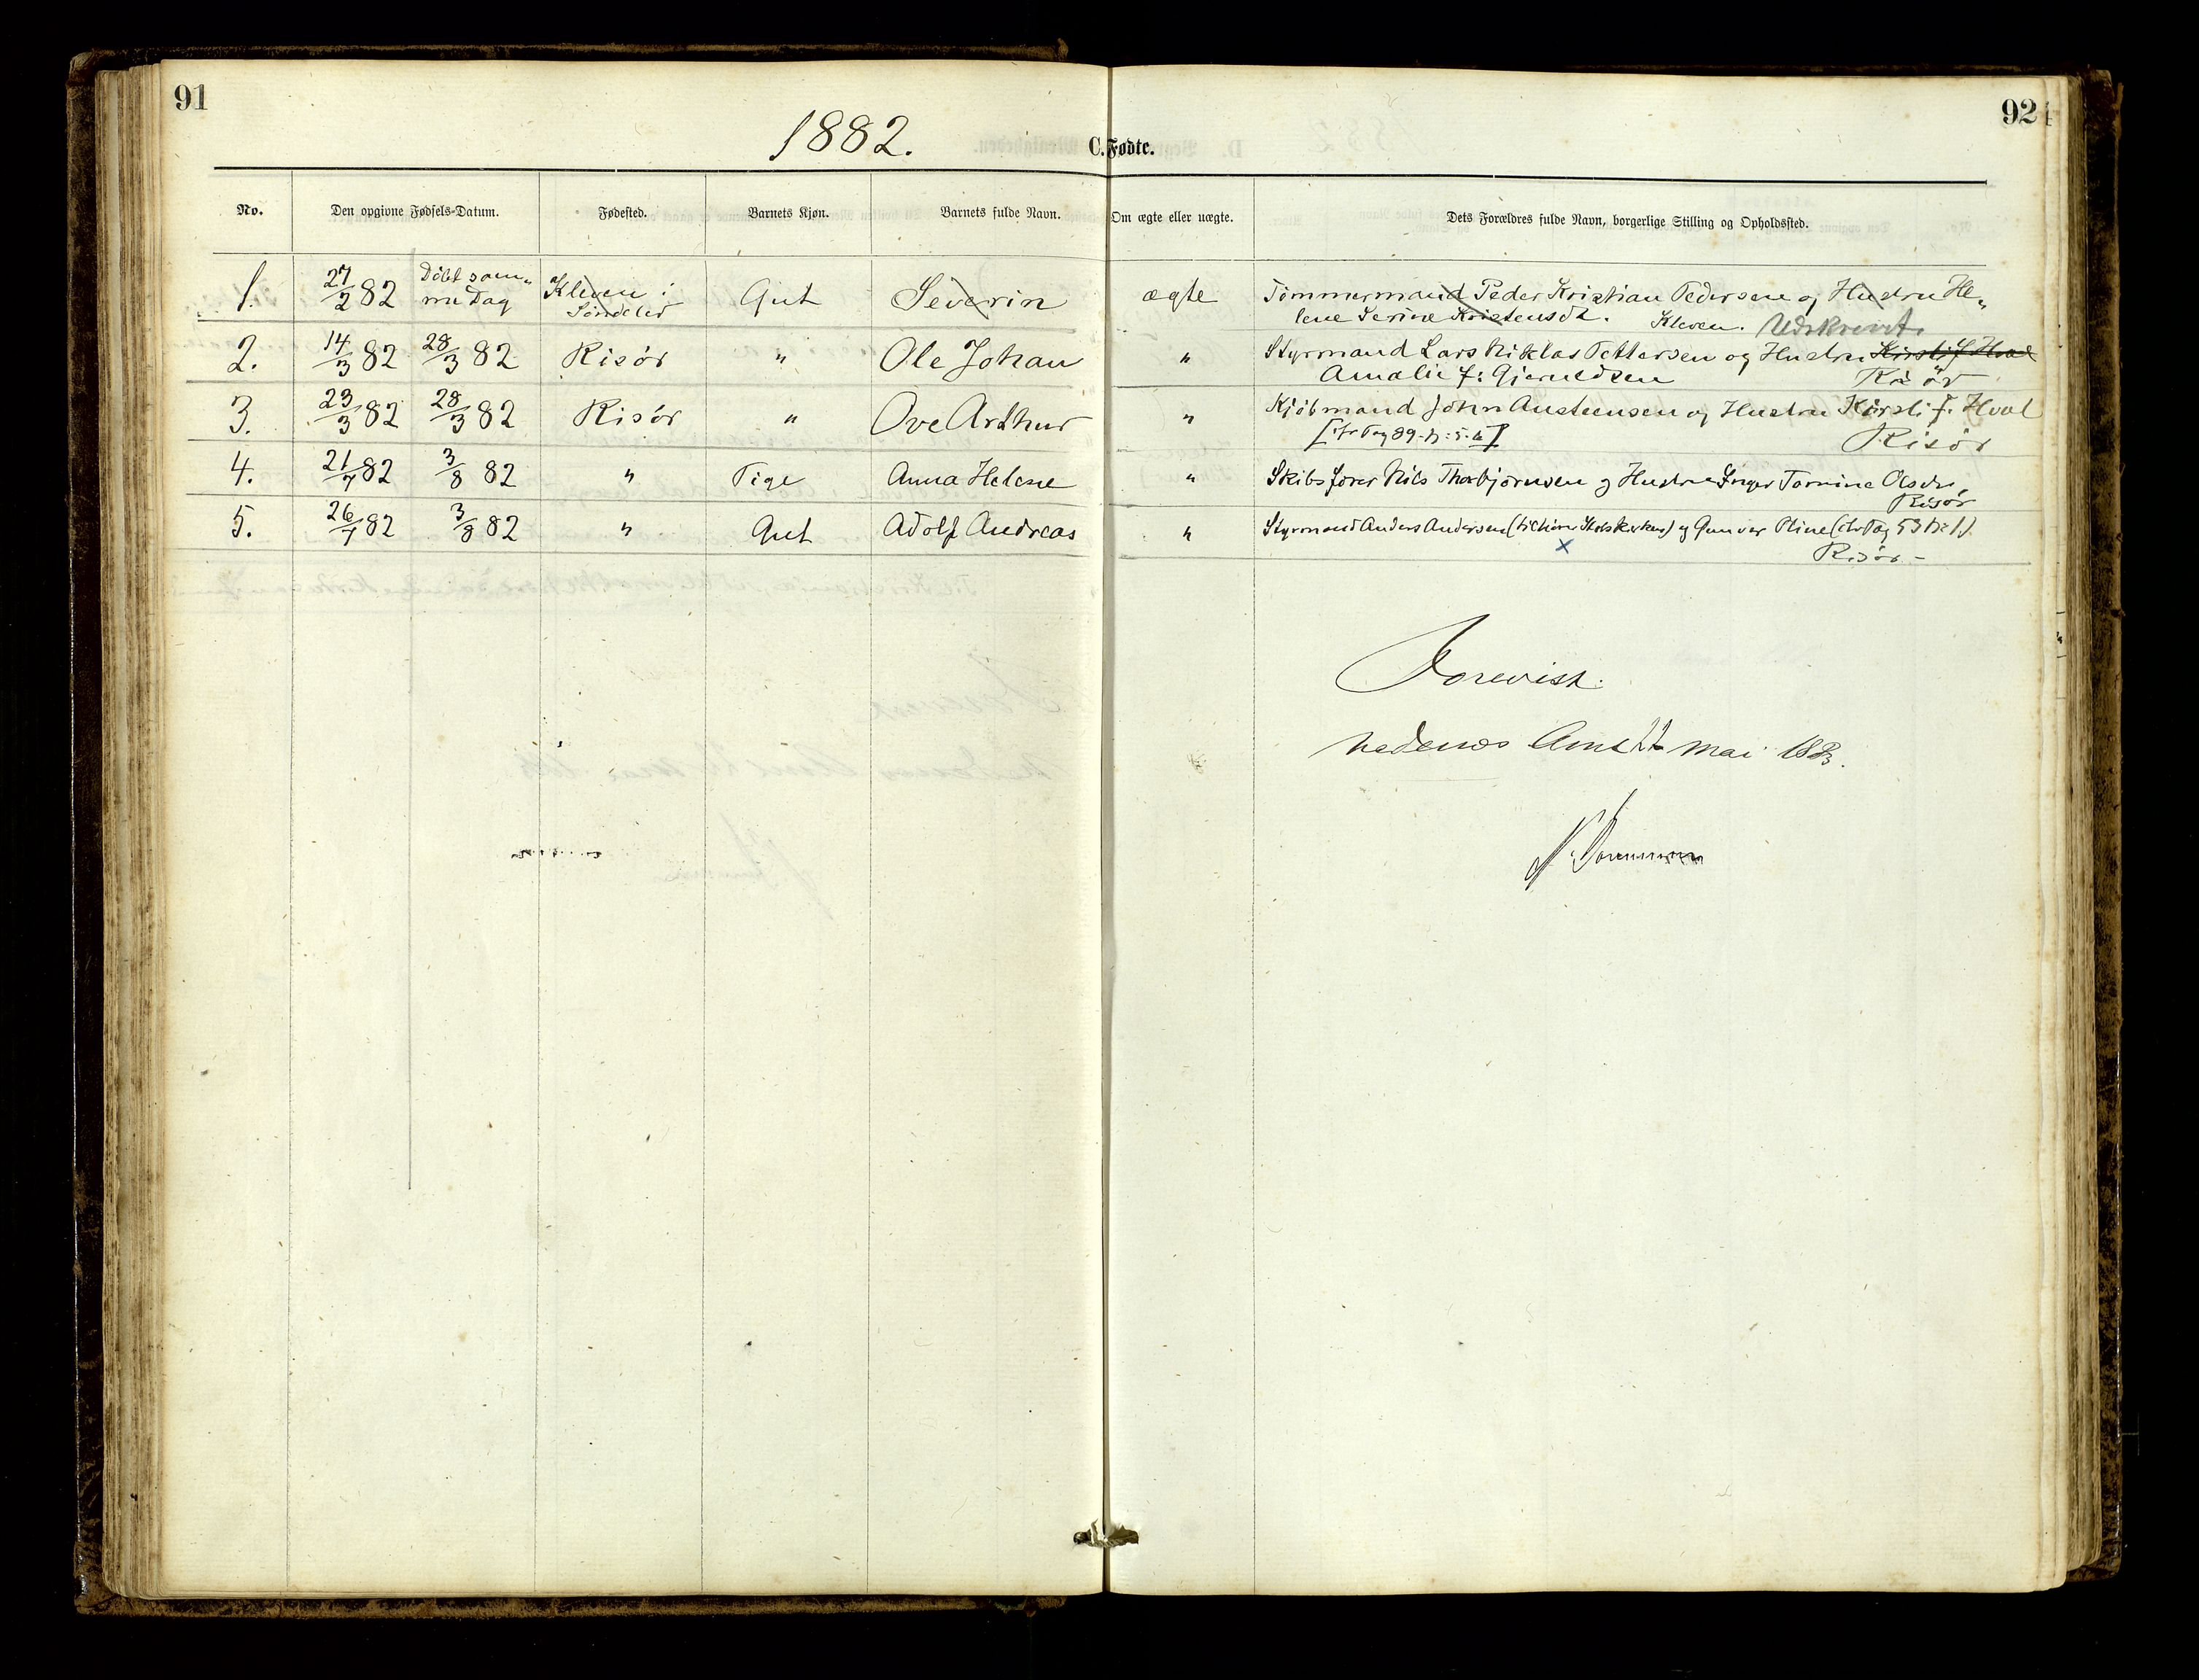 91
92
1882.
C. Fødte.
No. Den opgivne Fødsels-Datum. Fødested. Barnets Kjøn. Barnets fulde Navn. Om ægte eller uægte. Dets Forældres fulde Navn, borgerlige Stilling og Opholdssted.
1. 27/2 82 Döbt sam„ Kleven i Gut Severin ægte Tömmermand Peder Kristian Pedersen og Hustru He„
me Dag Söndeled lene Serine Kristensdt. Kleven. Udskrevet.
2. 14/3 82 28/3 82 Risör " Ole Johan " Styrmand Lars Niklas Pettersen og Hustru Kirsti f. Hval
Amalie f: Gjeruldsen Risör
3. 23/3 82 28/3 82 Risör " Ove Arthur " Kjöbmand John Austensen og Hustru Kirsti f. Hval
Risör
4. 21/7 82 3/8 82 " Pige Anna Helene " Skibsförer Nils Thorbjörnsen og Hustru Inger Tomine Olsdr,
Risör
5. 26/7 82 3/8 82 " Gut Adolf Andreas " Styrmand Anders Andersen (tilhører Statskirken) og Gunvor Oline (cfr Pag 53 N: 1)
x Risör -
Forevist.
Nedenes Amt 22 Mai 1883.